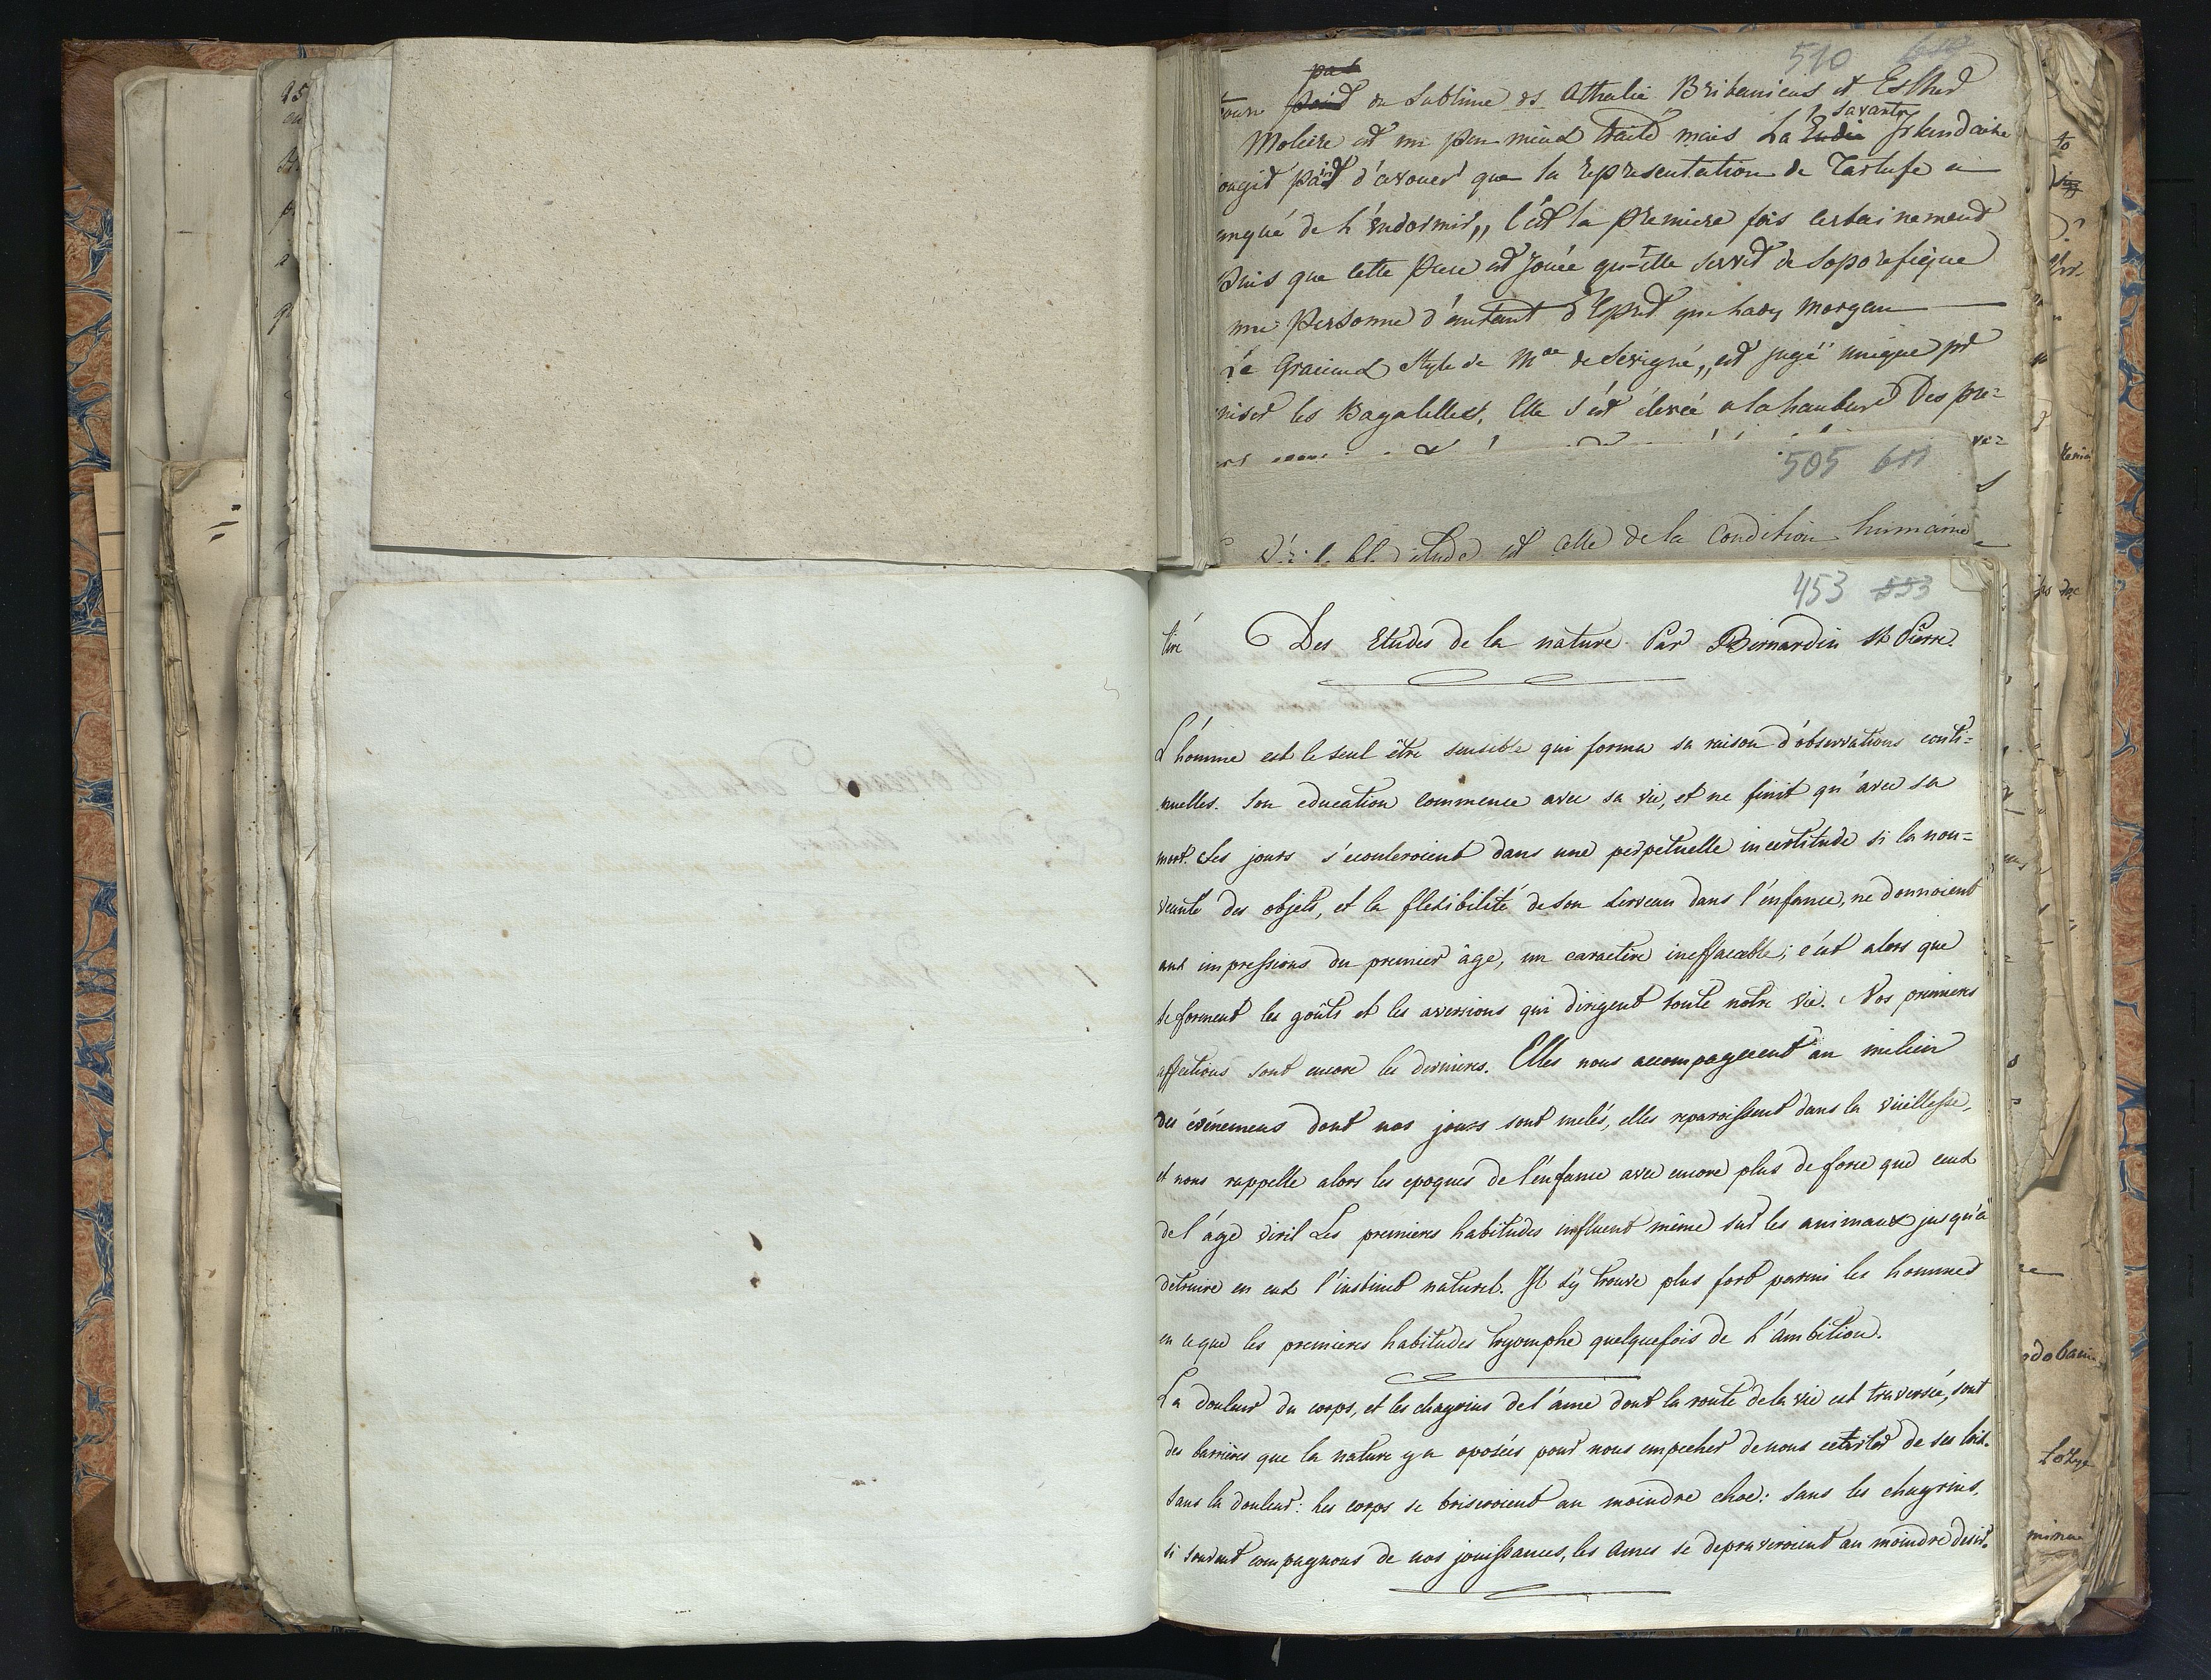 510
pas
du sublime de Athalie Britanicus et Esther
savante
Moliere est un peu mieux traité mais La Irlandaise
d'avouer que la representation de Tartufe a
de l'endormir,, C'est la premiere fois certainement
que cette piece est jouée qu'elle servit de soporefique
Personne d'autant d'esprit que Lady Morgan
Le Gracieux style de Mde de Sevigné,, est jugé unique pr
les Bagatelles, Elle s'est elevée a la hauteur Des pre=
505 611
etude est celle de la condition humaine
453 553
tiré Des Etudes de la nature Par Bernardin St Pierre.
L'homme est le seul être sensible qui forma sa raison d'observations conti=
nuelles. Son education commence avec sa vie, et ne finit qu'avec sa
mort. Ses jours s'ecouleroient dans une perpetuelle incertitude si la nou=
veauté des objets, et la flexibilité de son serveau dans l'enfance, ne donnoient
aux impressions du premier âge, un caractère ineffacable; c'est alors que
se forment les goûts et les aversions qui dirigent toute notre vie. Nos premiers
affections sont encore les dernieres. Elles nous accompagnent au milieu
des événemens dont nos jours sont melés, elles reparoissent dans la vieillesse,
et nous rappelle alors les epoques de l'enfance avec encore plus de force que ceux
de l'âge viril Les premieres habitudes influent même sur les animaux jusqu'à
detruire en eux l'instinct naturel. Il s'y trouve plus fort parmi les hommes
en ce que les premieres habitudes tryomphe quelquefois de l'ambition.
La douleur du corps, et les chagrins de l'ame dont la route de la vie est traversée, sont
des barrières que la nature y a oposées pour nous empecher de nous ecarter de ses loix.
Sans la douleur: les corps se briseroient au moindre choc: sans les chagrins,
si souvent compagnons de nos jouissances, les ames se depraveroient au moindre desir.